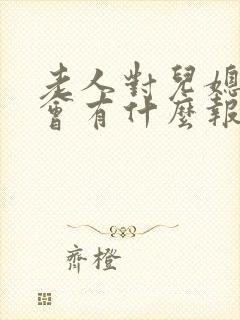 老人對兒媳
會有什麼報
齊橙